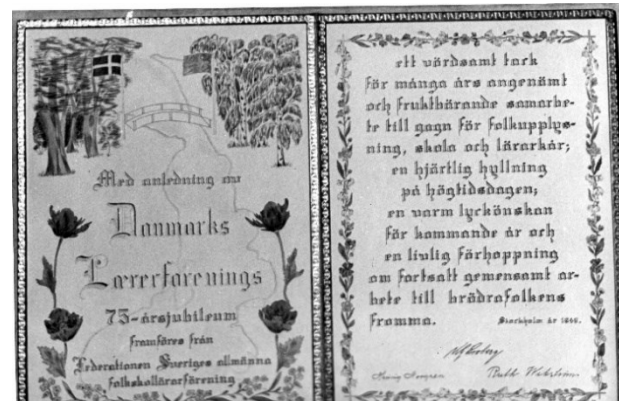 Med anledning av
Danmarks
Lærerforenings
75-årsjubileum
framföres från
Federationen Sveriges allmänna
folkskollärarförening
ett vördsamt tack
för många års angenämt
och fruktbärande samarbe-
te till gagn för folkupplys-
ning, skola och lärarkår;
en hjärtlig hyllning
på högtidsdagen;
en varm lyckönskan
för kommande år och
en livlig förhoppning
om fortsatt gemensamt ar-
bete till brödrafolkens
fromma.
Stockholm år